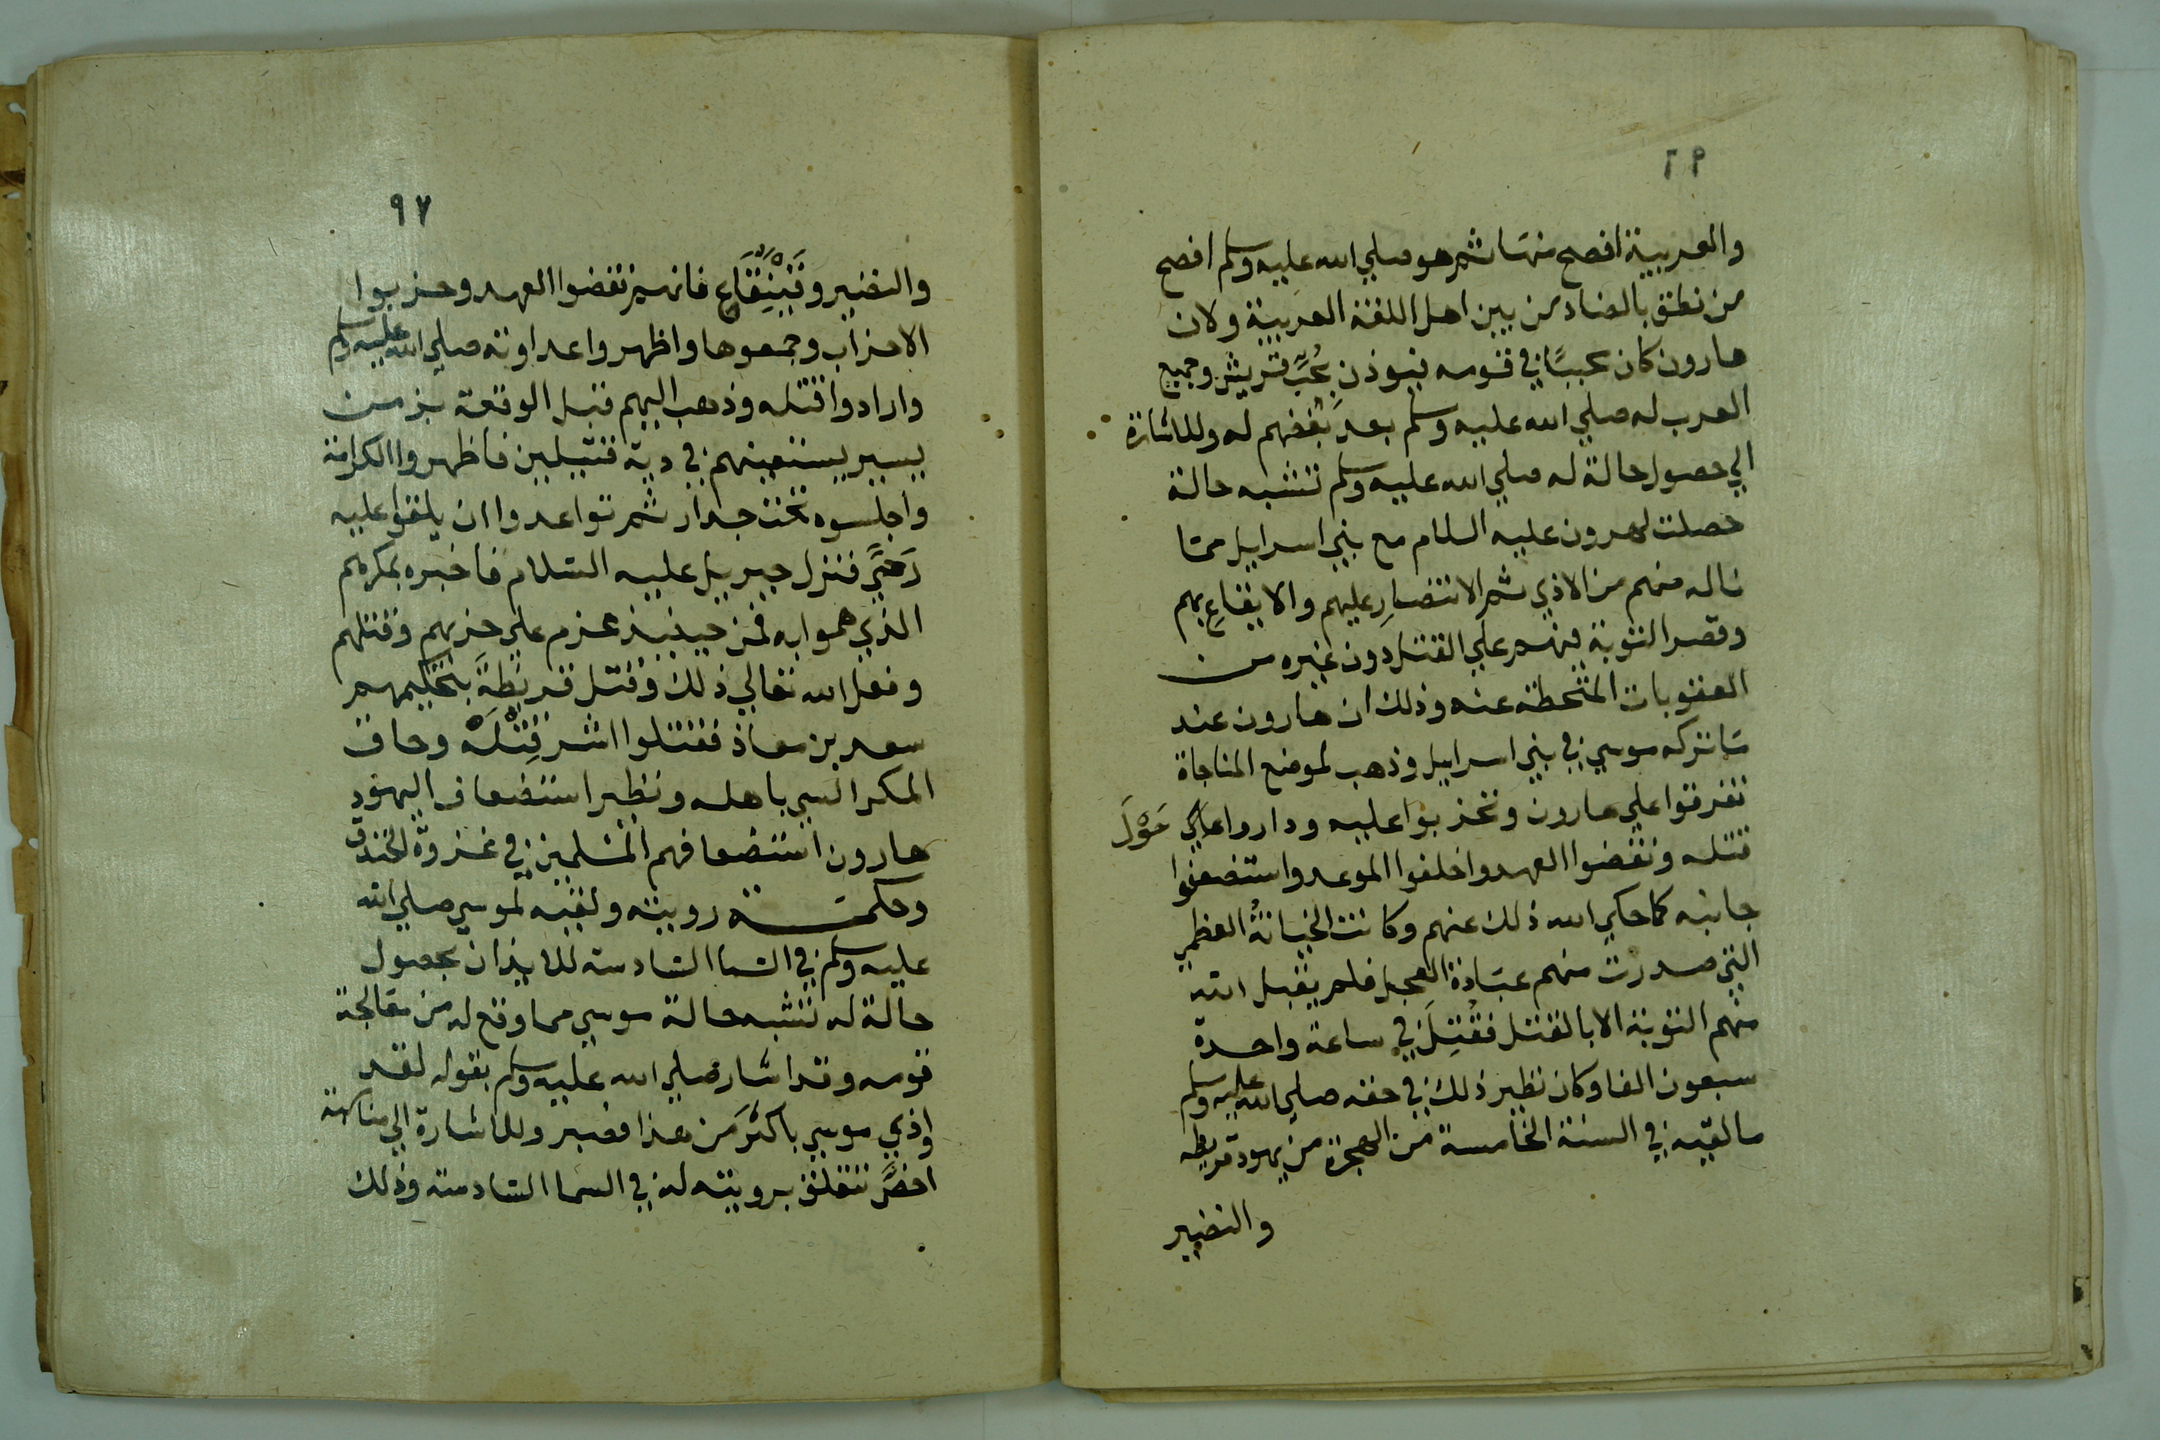 ٩٦
والعربية افصح منها ثم هو صلي الله عليه وسلم افصح
من نطق بالضاد من بين اهل اللغة العربية ولان
هارون كان محببًا في قومه فيوذن بحُبِّ قريش وجميع
العرب له صلي الله عليه وسلم بعد بُغضهم له وللاشارة
الي حصول حالة له صلي الله عليه وسلم تشبه حالة
حصلت لهرون عليه السلام مع بني اسراييل مما
ناله منهم من الاذي ثم الانتصارِ عليهم والايقاعِ بهم
وقصر التوبة فيهم علي القتل دون غيره من
العقوبات المنحطة عنه وذلك ان هارون عند
ما تركه موسي في بني اسراييل وذهب لموضع المناجاة
تفرقوا علي هارون وتحزبوا عليه وداروا علي حَوْلَ
قتله ونقضوا العهد واخلفوا الموعد واستضعفوا
جانبه كما حكي الله ذلك عنهم وكانت الخيانةُ العظمي
التي صدرت منهم عبادة العجل فلم يقبل الله
منهم التوبة الا بالقتل فقُتِلَ في ساعة واحدة
سبعون الفا وكان نظير ذلك في حقه صلي الله عليه وسلم
ما لقيه في السنة الخامسة من الهجرة من يهود قريظة
والنضير
٩٧
والنضير وقَيْنُقَاعِ فانهم نقضوا العهد وحزبوا
الاحزاب وجمعوها واظهروا عداوته صلي الله عليه وسلم
وارادوا قتله وذهب اليهم قبل الوقعة بزمن
يسير يستعينهم في دية قتيلين فاظهروا اكرامه
واجلسوه تحت جدار ثم تواعدوا ان يلقوا عليه
رَحيً فنزل جبريل عليه السلام فاخبره بمكرهم
الذي هموا به فمن حينيذ عزم علي حربهم وقتلهم
وفعل الله تعالي ذلك وقتل قريظةَ بتحكيمهم
سعد بن معاذ فقتلوا اشر قِتْلَه وحاق
المكر السيي باهله ونظير استضعاف اليهود
هارون استضعافهم المسلمين في غزوة الخندق
وحكمة رويته ولقيه لموسي صلي الله
عليه وسلم في السما السادسة للايذان بحصول
حالة له تشبه حالة موسي مما وقع له من معالجة
قومه وقد اشار صلي الله عليه وسلم بقوله لقد
اوذي موسي باكثر من هذا فصبر وللاشارة الي مناسبة
اخصَّ تتعلق برويته له في السما السادسة وذلك